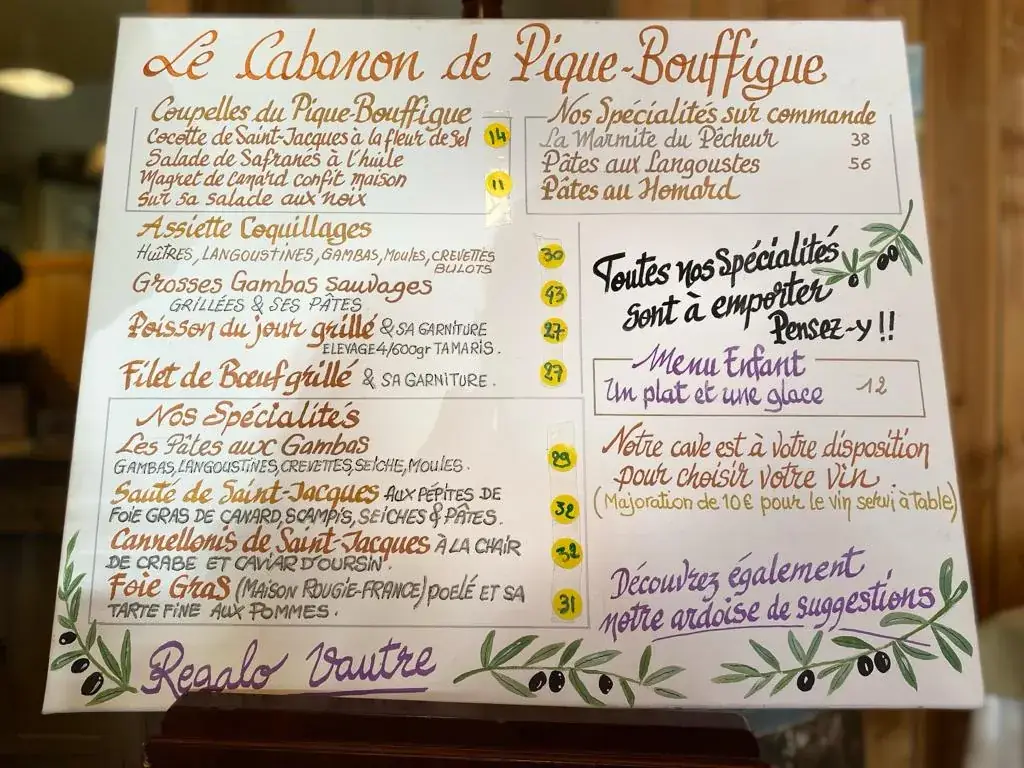 Le Cabanon de Pique-Bouffigue
Coupelles du Pique-Bouffigue
Cocotte de Saint-Jacques à la fleur de Sel 14
Salade de Safranés à l'huile
Magret de Canard confit maison 11
Sur sa salade aux noix
Nos Spécialités sur commande
La Marmite du Pêcheur 38
Pâtes aux Langoustes 56
Pâtes au Homard
Assiette Coquillages
HUÎTRES, LANGOUSTINES, GAMBAS, MOULES, CREVETTES 30
BULOTS
Grosses Gambas Sauvages 43
GRILLÉES & SES PÂTES
Poisson du jour grillé & SA GARNITURE 27
ELEVAGE 4/600gr TAMARIS.
Filet de Bœuf grillé & SA GARNITURE. 27
Toutes nos Spécialités
sont à emporter
Pensez-y !!
Menu Enfant
Un plat et une glace 12
Nos Spécialités
Les Pâtes aux Gambas
GAMBAS, LANGOUSTINES, CREVETTES, SEICHE, MOULES. 29
Sauté de Saint-Jacques AUX PÉPITES DE
FOIE GRAS DE CANARD, SCAMPIS, SEICHES & PÂTES. 32
Cannellonis de Saint-Jacques À LA CHAIR
DE CRABE ET CAVIAR D'OURSIN. 32
Foie Gras (MAISON ROUGIE-FRANCE) POELÉ ET SA
TARTE FINE AUX POMMES. 31
Notre cave est à votre disposition
pour choisir votre vin.
(Majoration de 10€ pour le vin servi à table)
Découvrez également
notre ardoise de suggestions
Regalo Vautre